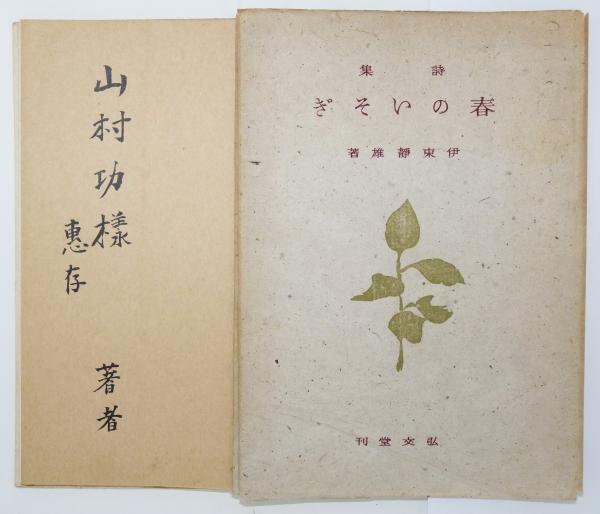 詩集
春のいそぎ
伊東靜雄著
弘文堂刊
山村功樣
惠存
著者